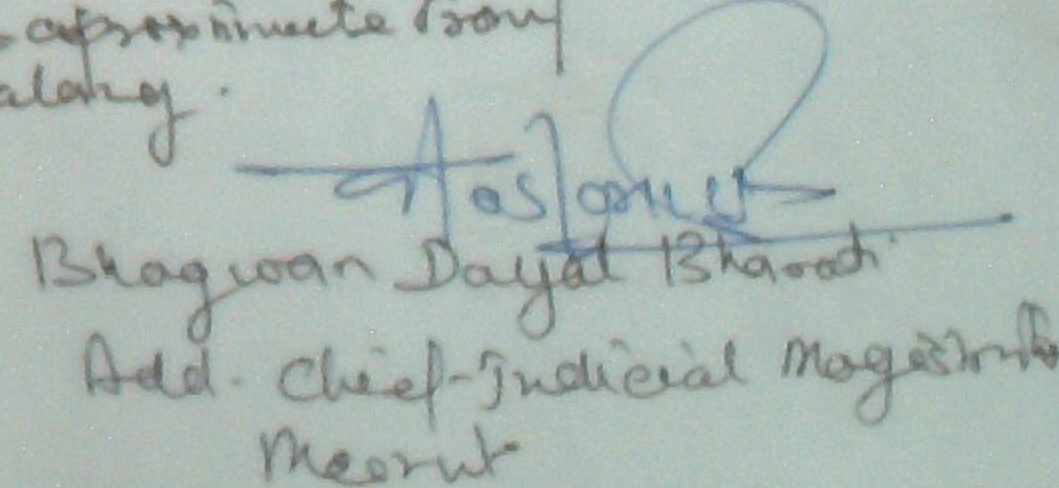 approximate from
along.
Bhagwan Dayal Bharati
Add. Chief-Judicial Magistrate
Meerut